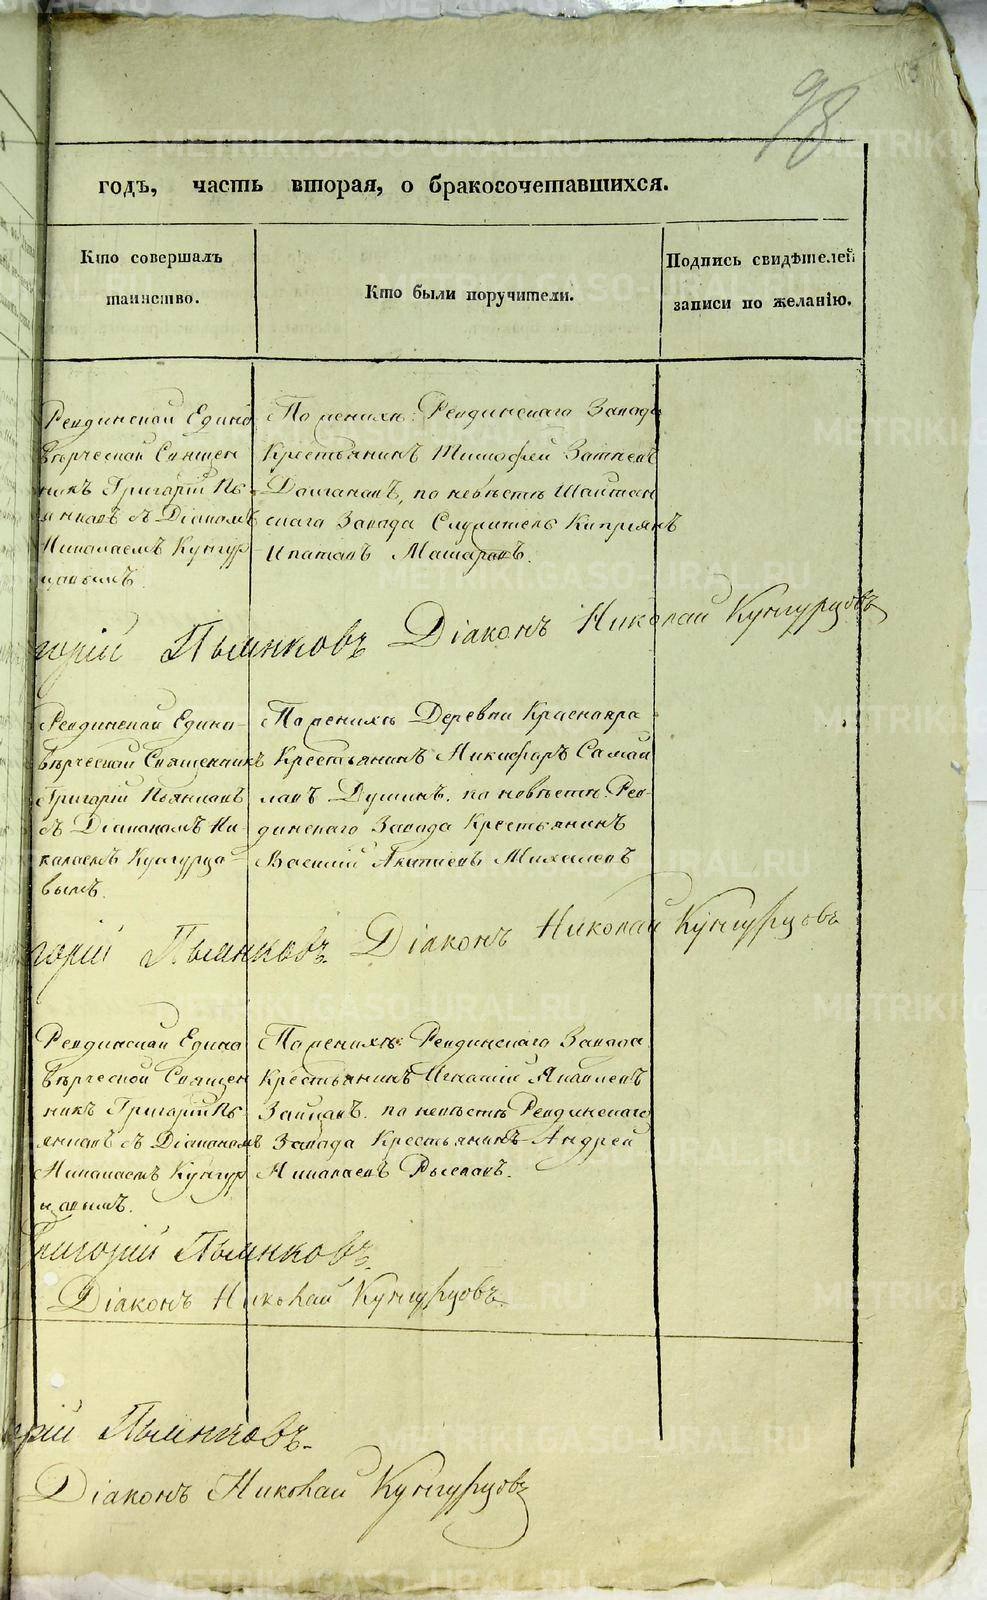 98
годъ, часть вторая, о бракосочетавшихся.
Кто совершалъ таинство.
Кто были поручители.
Подпись свидѣтелей записи по желанію.
Ревдинской Едино
вѣрческой Священ
никъ Григорій Пь
янковъ съ Діакономъ
Николаемъ Кунгур
цовымъ.
По женихѣ: Ревдинскаго Завода
Крестьянинъ Тимофей
по невѣстѣ Шайтан
скаго Завода Служитель Кипріянъ
Ипатовъ Макаровъ.
горій Пьянковъ Діаконъ Николай Кунгурцовъ
Ревдинской Едино-
вѣрческой Священникъ
Григорій Пьянковъ
съ Діакономъ Ни-
колаемъ Кунгурцо-
вымъ.
По женихѣ Деревни Краснояра
Крестьянинъ Никифоръ Самой
ловъ Душинъ. по невѣстѣ: Рев-
динскаго Завода Крестьянинъ
Василій Михалевъ
горій Пьянковъ. Діаконъ Николай Кунгурцовъ
Ревдинской Едино
вѣрческой Священ
никъ Григорій Пь
янковъ съ Діакономъ
Николаемъ Кунгур
цовымъ.
По женихѣ: Ревдинскаго Завода
Крестьянинъ Игнатій Яковлевъ
Зайцовъ. по невѣстѣ Ревдинскаго
Завода Крестьянинъ Андрей
Николаевъ
Григорій Пьянковъ.
Діаконъ Николай Кунгурцовъ.
орій Пьянковъ.
Діаконъ Николай Кунгурцовъ
METRIKI.GASO-URAL.RU